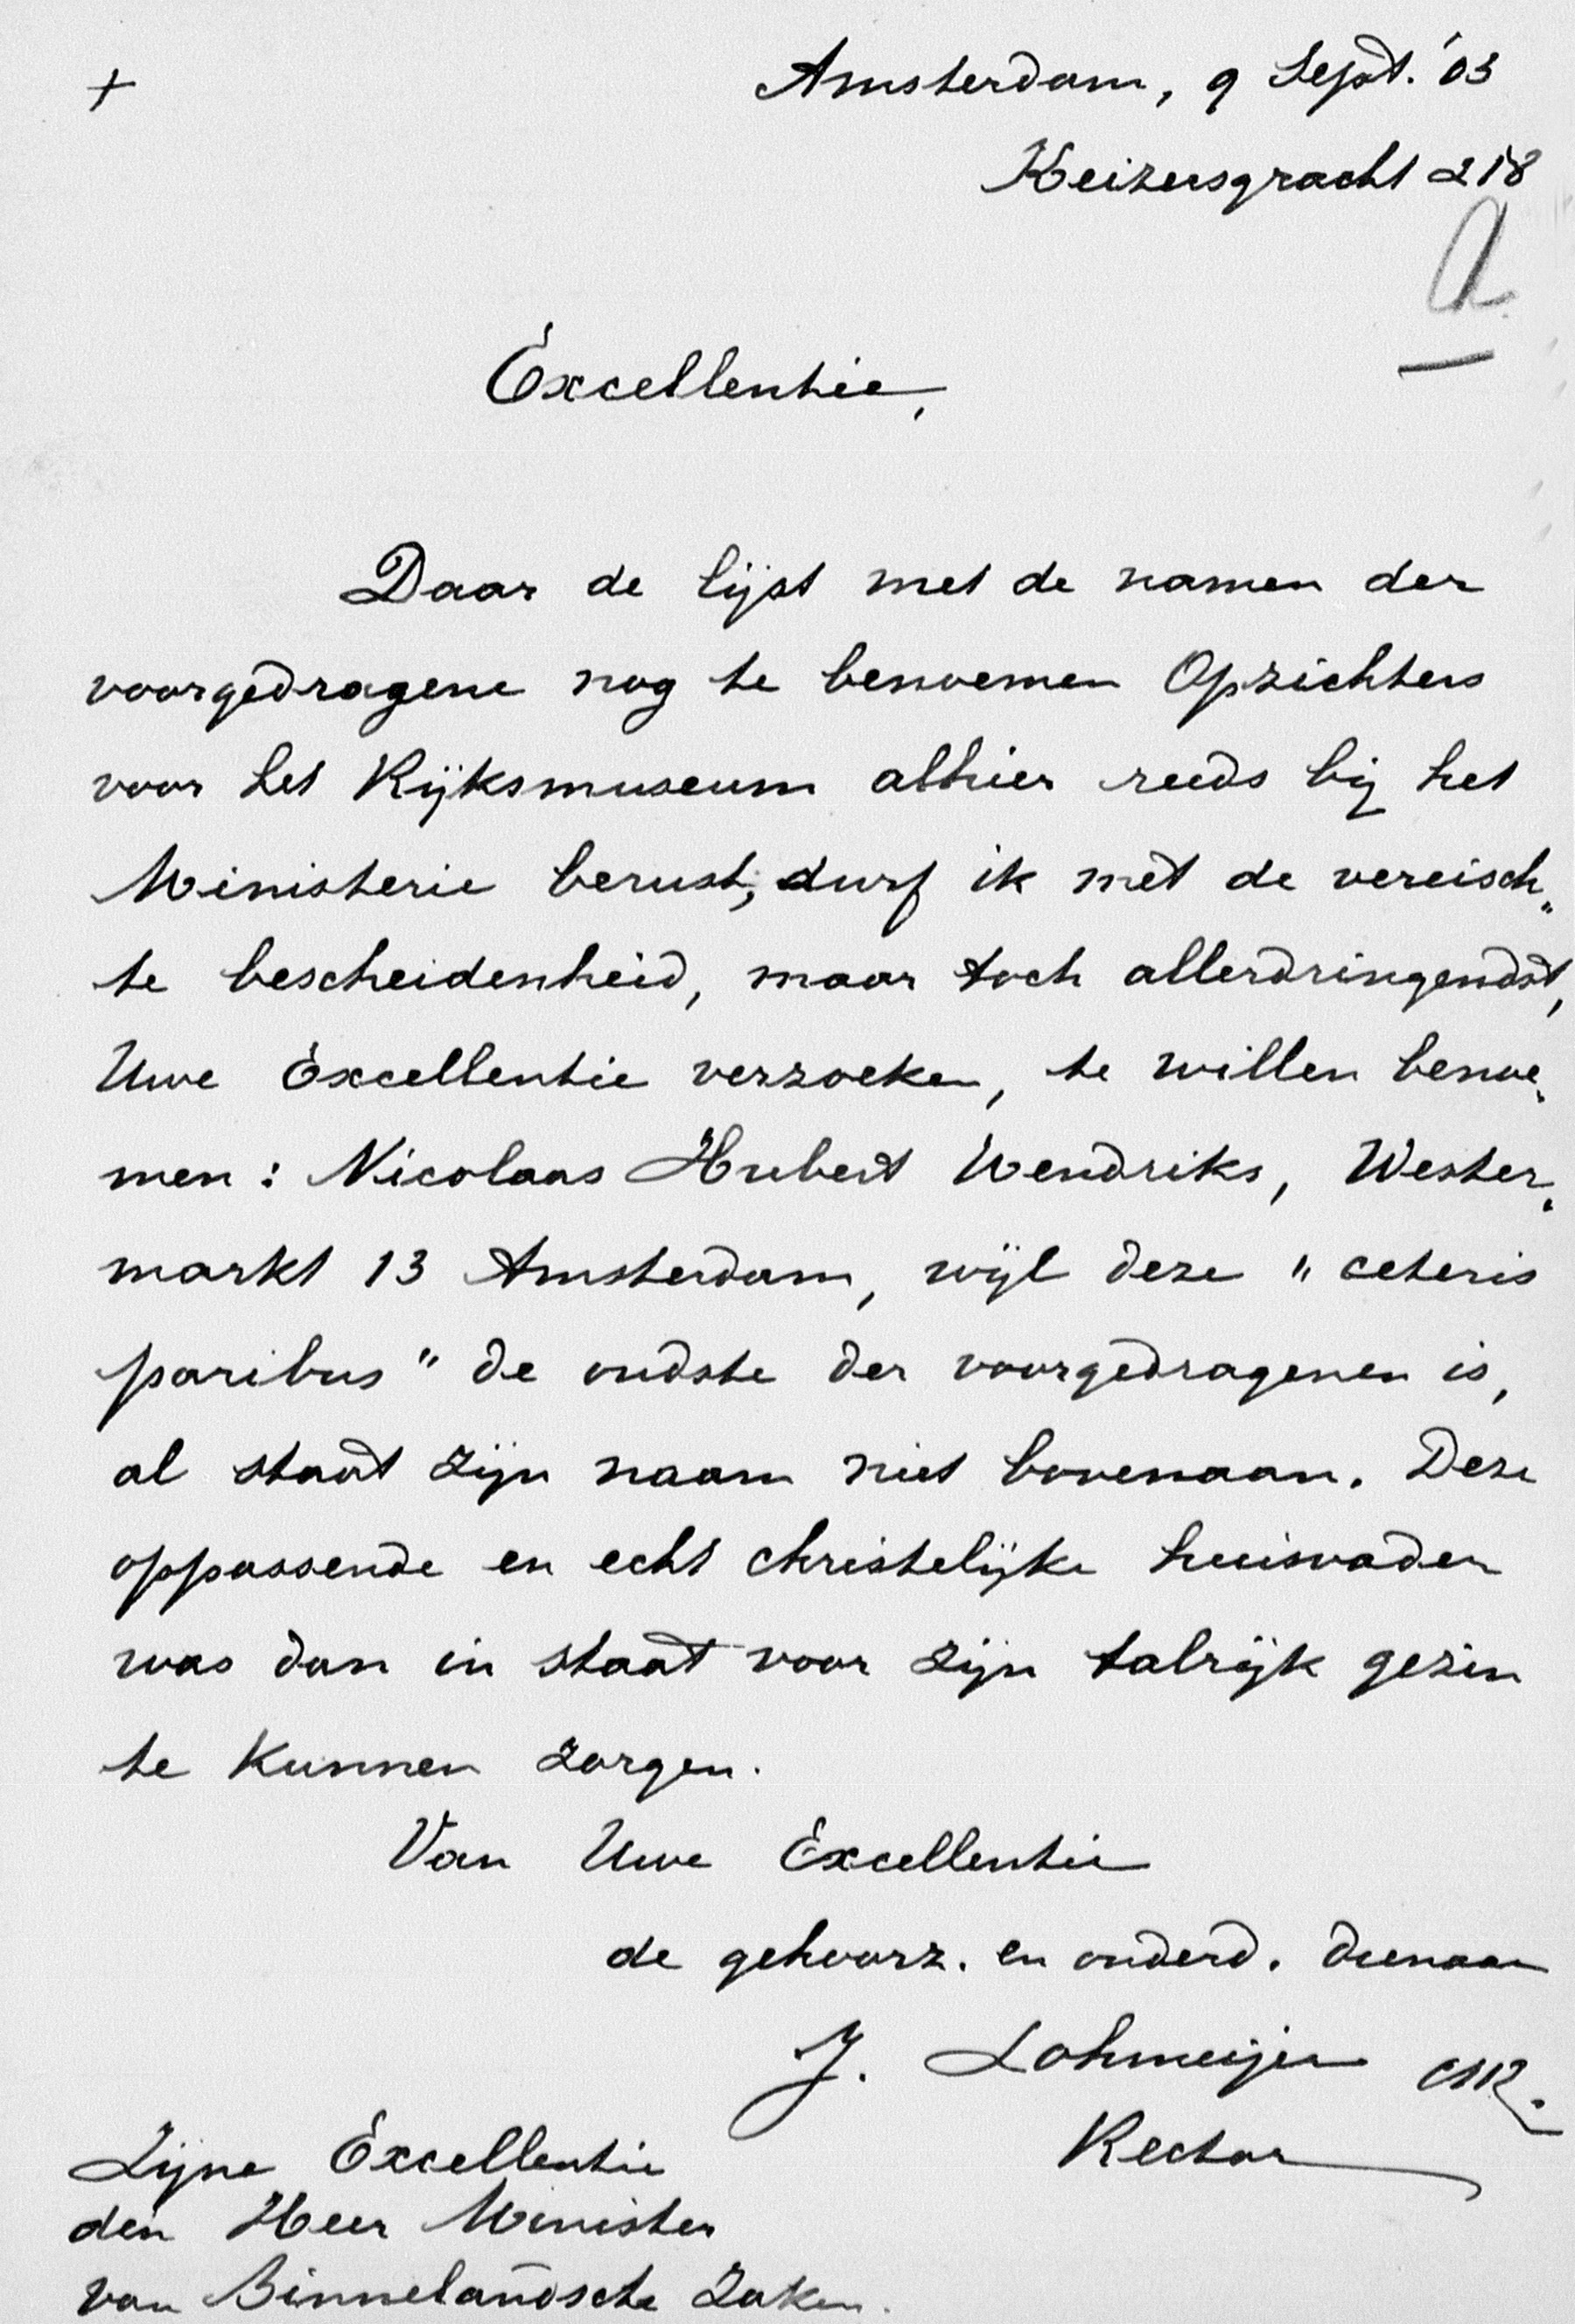 +
Amsterdam, 9 Sept. '03
Keizersgracht 218
a
Excellentie,
Daar de lijst met de namen der
voorgedragene nog te benoemen Opzichters
voor het Rijksmuseum alhier reeds bij het
Ministerie berust, durf ik mèt de vereisch„
te bescheidenheid, maar toch allerdringendst,
Uwe Excellentie verzoeken, te willen benoe„
men: Nicolaas Hubert Wendriks, Wester„
markt 13 Amsterdam, wijl deze "ceteris
paribus" de oudste der voorgedragenen is,
al staat zijn naam niet bovenaan. Deze
oppassende en echt christelijke huisvader
was dan in staat voor zijn talrijk gezin
te kunnen zorgen.
Van Uwe Excellentie
de gehoorz. en onderd. dienaar
J. Lohmeijer
Rector
Zijne Excellentie
den Heer Minister
van Binnelandsche Zaken.